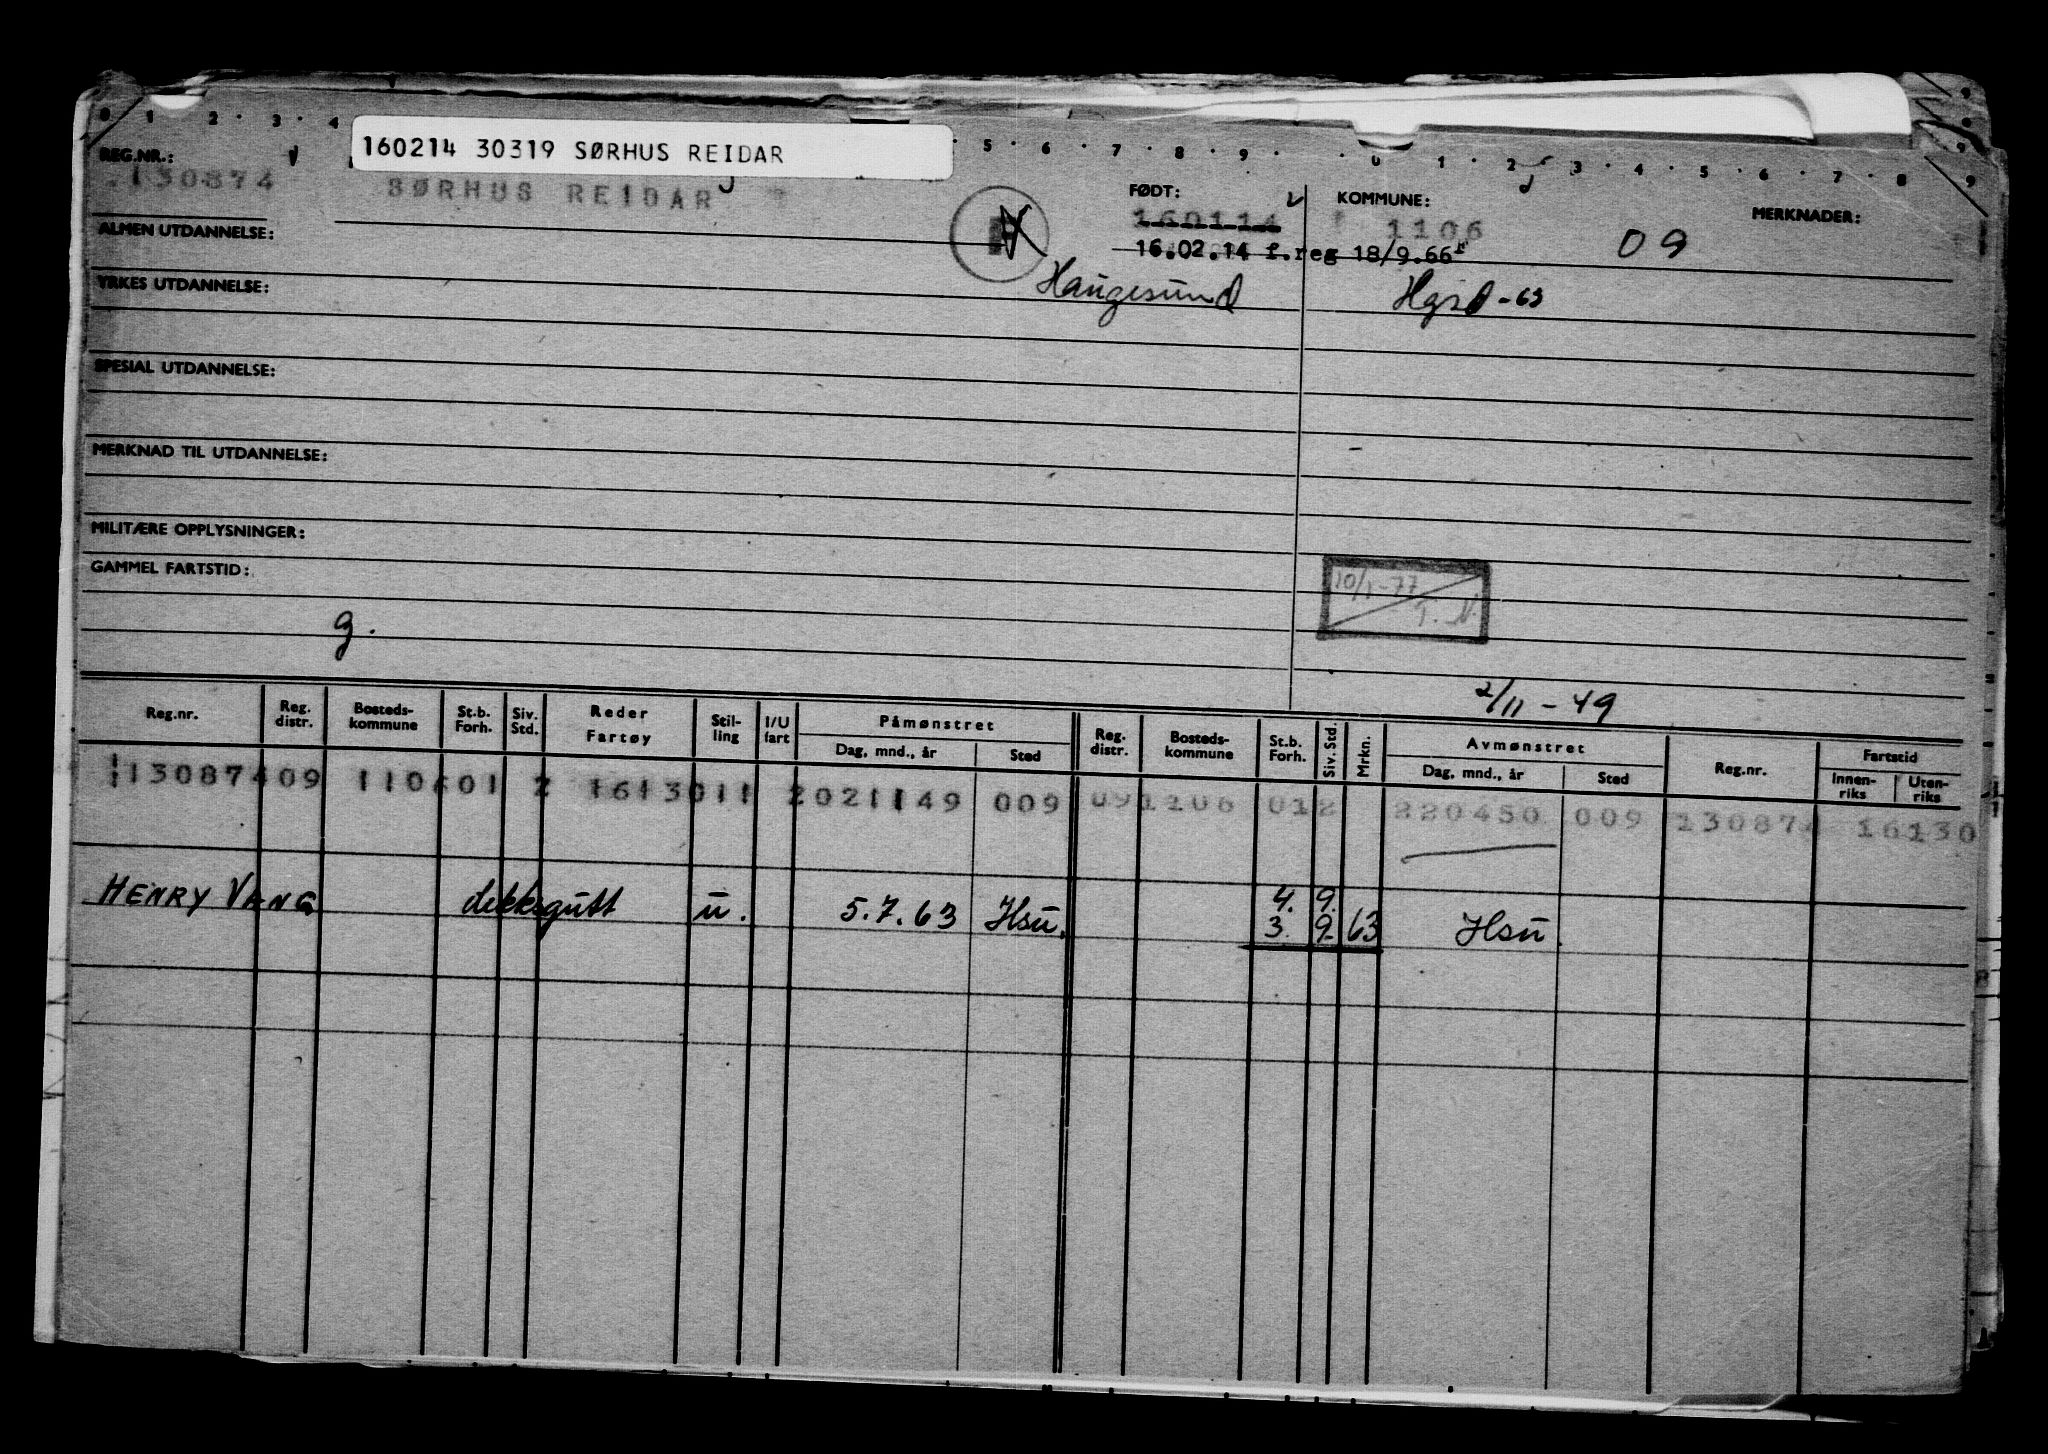 0 1 2 3 4 5 6 7 8 9 0 1 2 3 4 5 6 7 8 9
160214 30319 SØRHUS REIDAR
REG.NR.:
130874
SØRHUS REIDAR
FØDT:
160114
16.02.14 f.reg 18/9.66
Haugesund
KOMMUNE:
1106
09
MERKNADER:
Hgsd-63
ALMEN UTDANNELSE:
YRKES UTDANNELSE:
SPESIAL UTDANNELSE:
MERKNAD TIL UTDANNELSE:
MILITÆRE OPPLYSNINGER:
GAMMEL FARTSTID:
g.
10/1-77
T. N.
2/11-49
Reg.nr. Reg. distr. Bosteds-kommune St.b. Forh. Siv. Std. Reder Fartøy Stil-ling I/U fart Påmønstret Dag, mnd., år Sted Reg. distr. Bosteds-kommune St.b. Forh. Siv. Std. Mrkn. Avmønstret Dag, mnd., år Sted Reg.nr. Fartstid Innen-riks Uten-riks
113087409 110601 2 1613011 2021149 009 091106 012 220450 009 130874 16130
HENRY VANG dekksgutt u. 5.7.63 Hsu. 4. 9.
3. 9. 63 Hsu.